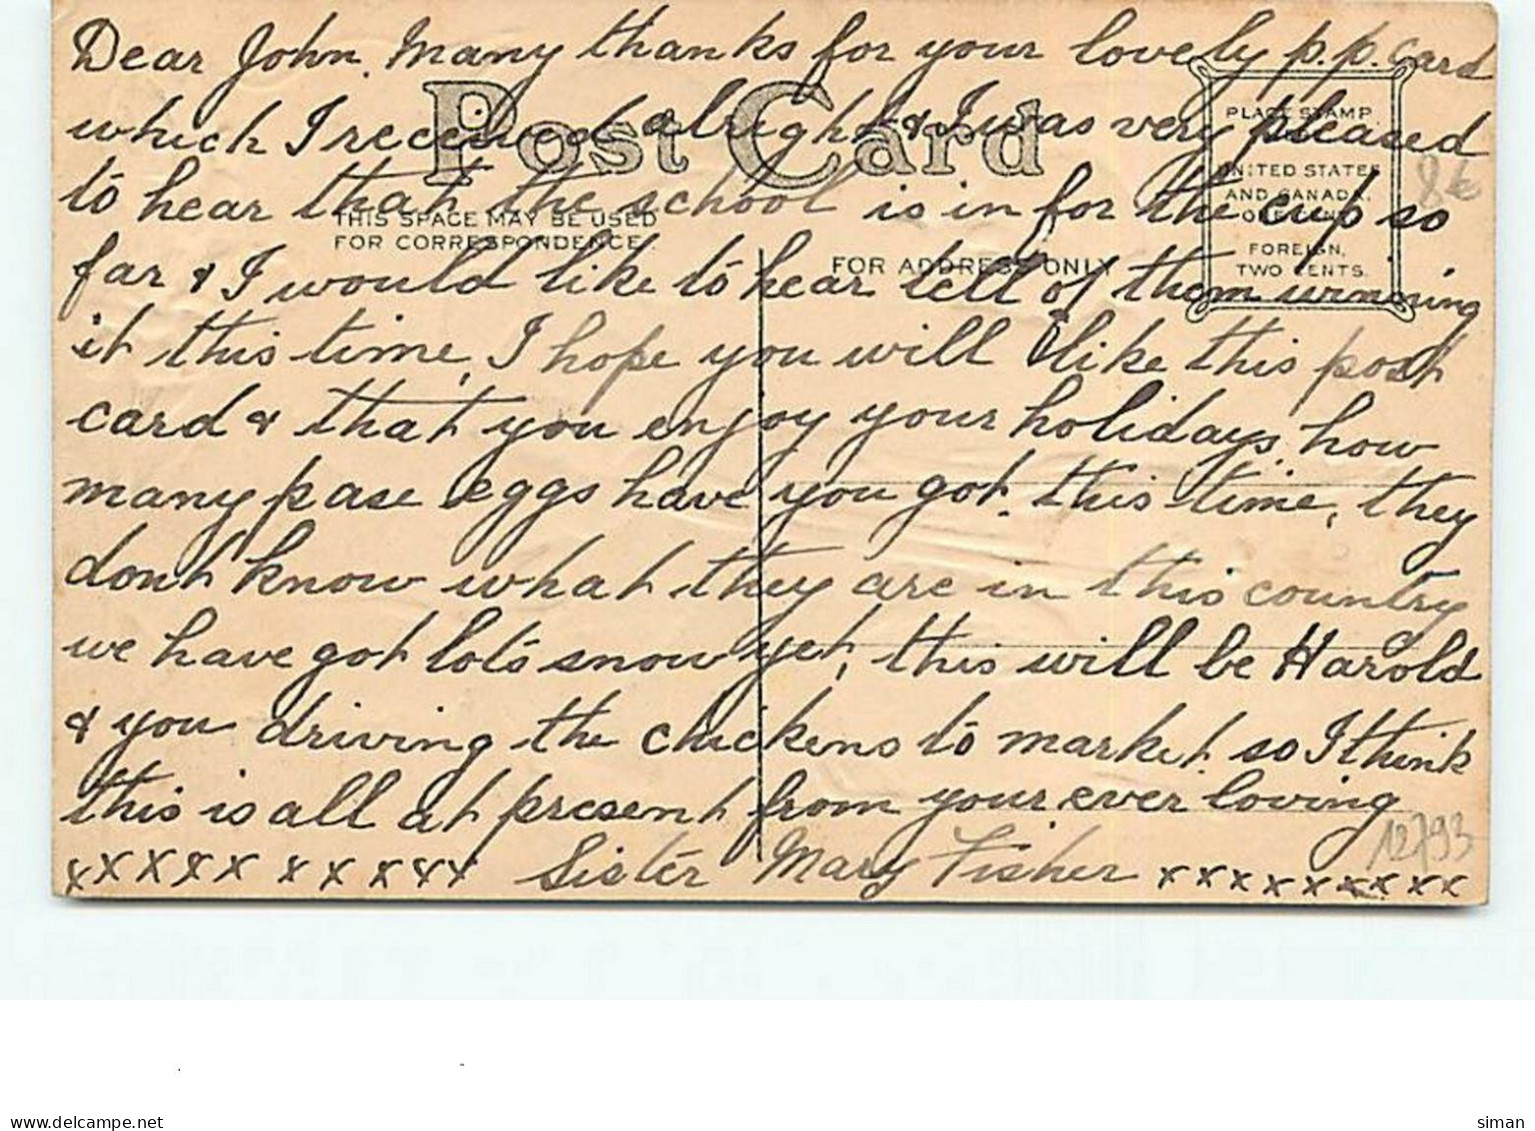 Dear John. Many thanks for your lovely p.p. card
Post Card
PLACE STAMP,
UNITED STATES
AND CANADA,
ONE CENT.
FOREIGN,
TWO CENTS.
which I received alright & I was very pleased
to hear that the school is in for the cup so
THIS SPACE MAY BE USED
FOR CORRESPONDENCE.
FOR ADDRESS ONLY
far & I would like to hear tell of them winning
it this time, I hope you will like this post
card & that you enjoy your holidays, how
many pase eggs have you got. this time, they
dont know what they are in this country
we have got lots snow yet, this will be Harold
& you driving the chickens to market. so I think
this is all at present from your ever loving
xxxxx xxxxx Sister Mary Fisher xxxxxxxxx
12793
delcampe.net
siman